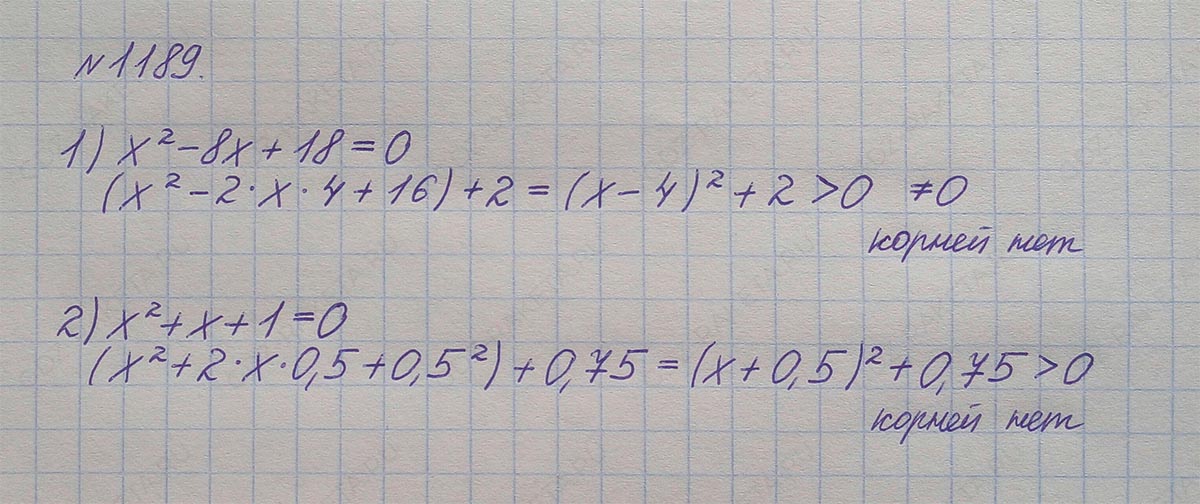 №1189.
1) x² - 8x + 18 = 0
(x² - 2·x·4 + 16) + 2 = (x - 4)² + 2 > 0 ≠0
корней нет
2) x² + x + 1 = 0
(x² + 2·x·0,5 + 0,5²) + 0,75 = (x + 0,5)² + 0,75 > 0
корней нет